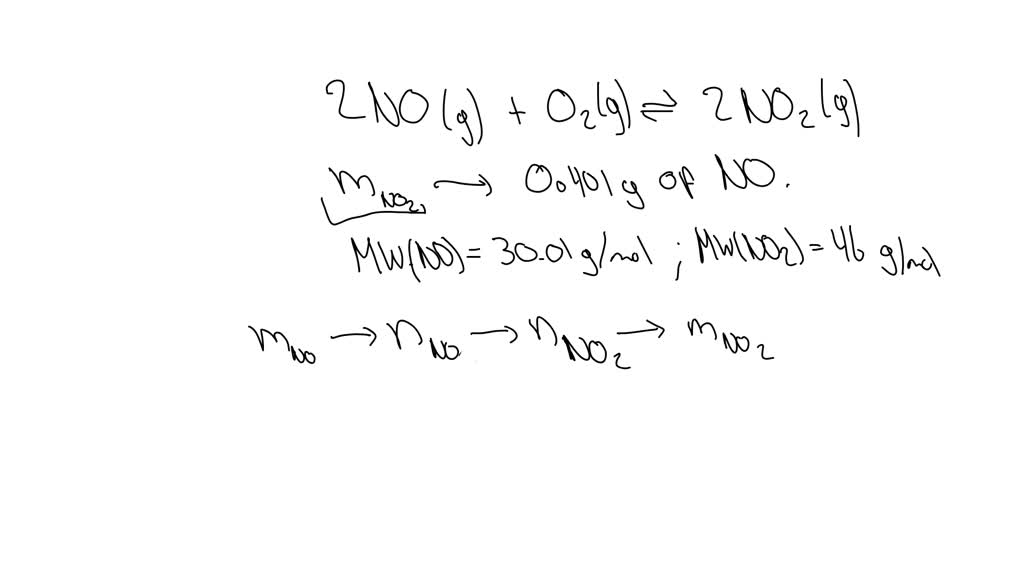 2NO(g) + O₂(g) ⇌ 2NO₂(g)
m_NO₂ → 0.401 g of NO.
MW(NO) = 30.01 g/mol ; MW(NO₂) = 46 g/mol
m_NO → n_NO → n_NO₂ → m_NO₂